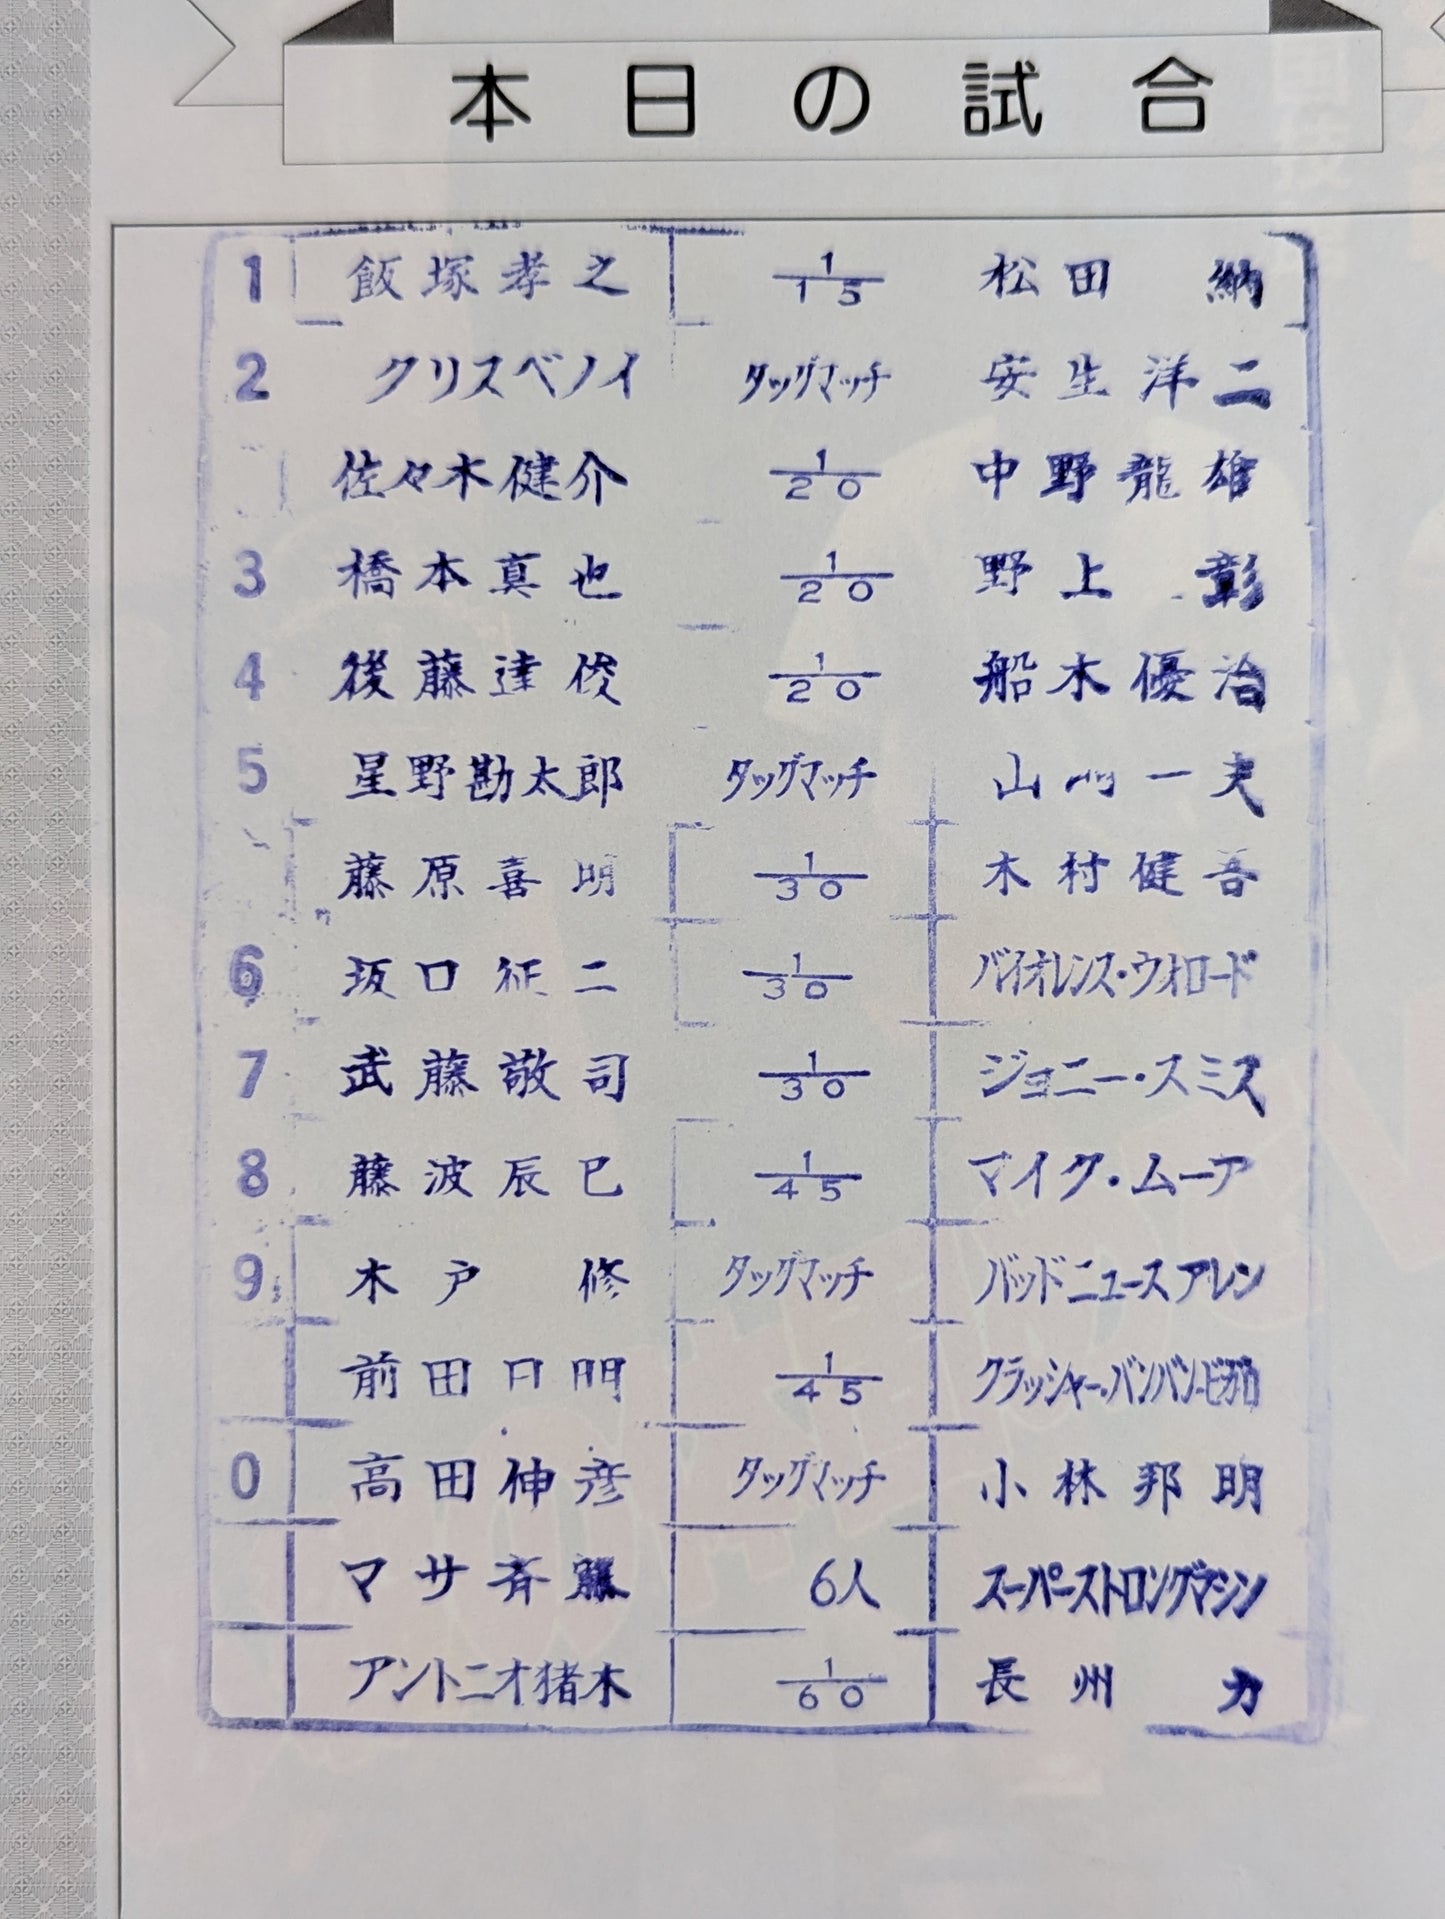 本日の試合
1 飯塚孝之 1/15 松田 納
2 クリスベノイ タッグマッチ 安生洋二
佐々木健介 1/20 中野龍雄
3 橋本真也 1/20 野上 彰
4 後藤達俊 1/20 船木優治
5 星野勘太郎 タッグマッチ 山崎一夫
藤原喜明 1/30 木村健吾
6 坂口征二 1/30 バイオレンス・ウォロード
7 武藤敬司 1/30 ジョニー・スミス
8 藤波辰巳 1/45 マイク・ムーア
9 木戸 修 タッグマッチ バッドニュースアレン
前田日明 1/45 クラッシャー・バンバン・ビガロ
0 高田伸彦 タッグマッチ 小林邦明
マサ斉藤 6人 スーパーストロングマシン
アントニオ猪木 1/60 長州 力